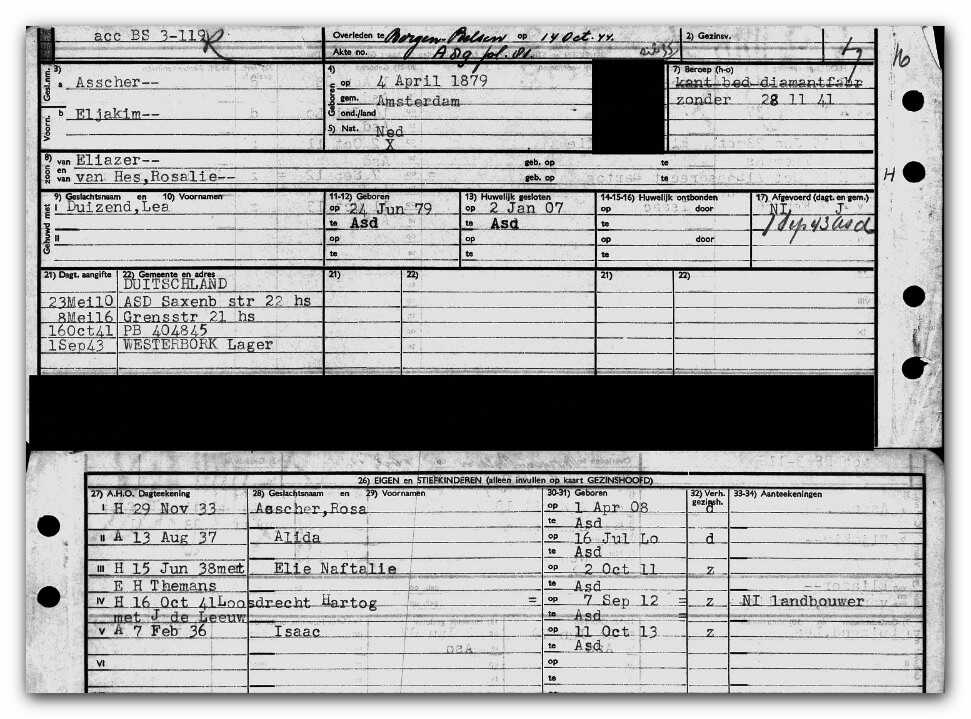 acc BS 3-119 R
Overleden te Bergen-Belsen op 14 Oct. 44.
Akte no. A 89 fol. 81.
2) Gezinsv.
16
Gesl.nm. 3) a Asscher--
Voorn. b Eljakim--
4) Geboren op 4 April 1879
gem. Amsterdam
ond./land
5) Nat. Ned
X
7) Beroep (h-o)
kant bed diamantfabr
zonder 28 11 41
8) zoon van Eliazer-- geb. op te
en van van Hes,Rosalie-- geb. op te
H
Gehuwd met
9) Geslachtsnaam en 10) Voornamen
I Duizend,Lea
II
11-12) Geboren
op 24 Jun 79
te Asd
op
te
13) Huwelijk gesloten
op 2 Jan 07
te Asd
op
te
14-15-16) Huwelijk ontbonden
op door
te
op door
te
17) Afgevoerd (dagt. en gem.)
NI J
1 Sep 43 Asd
21) Dagt. aangifte 22) Gemeente en adres 21) 22) 21) 22)
DUITSCHLAND
23Mei10 ASD Saxenb str 22 hs
8Mei16 Grensstr 21 hs
16Oct41 PB 404845
1Sep43 WESTERBORK Lager
26) EIGEN en STIEFKINDEREN (alleen invullen op kaart GEZINSHOOFD)
27) A.H.O. Dagteekening 28) Geslachtsnaam en 29) Voornamen 30-31) Geboren 32) Verh. gezinsh. 33-34) Aanteekeningen
I H 29 Nov 33 Asscher,Rosa op 1 Apr 08 d
te Asd
II A 13 Aug 37 Alida op 16 Jul Lo d
te Asd
III H 15 Jun 38met Elie Naftalie op 2 Oct 11 z
E H Themans te Asd
IV H 16 Oct 41Loosdrecht Hartog = op 7 Sep 12 = z NI landbouwer
met J de Leeuw te Asd =
V A 7 Feb 36 Isaac op 11 Oct 13 z
te Asd
VI op
te